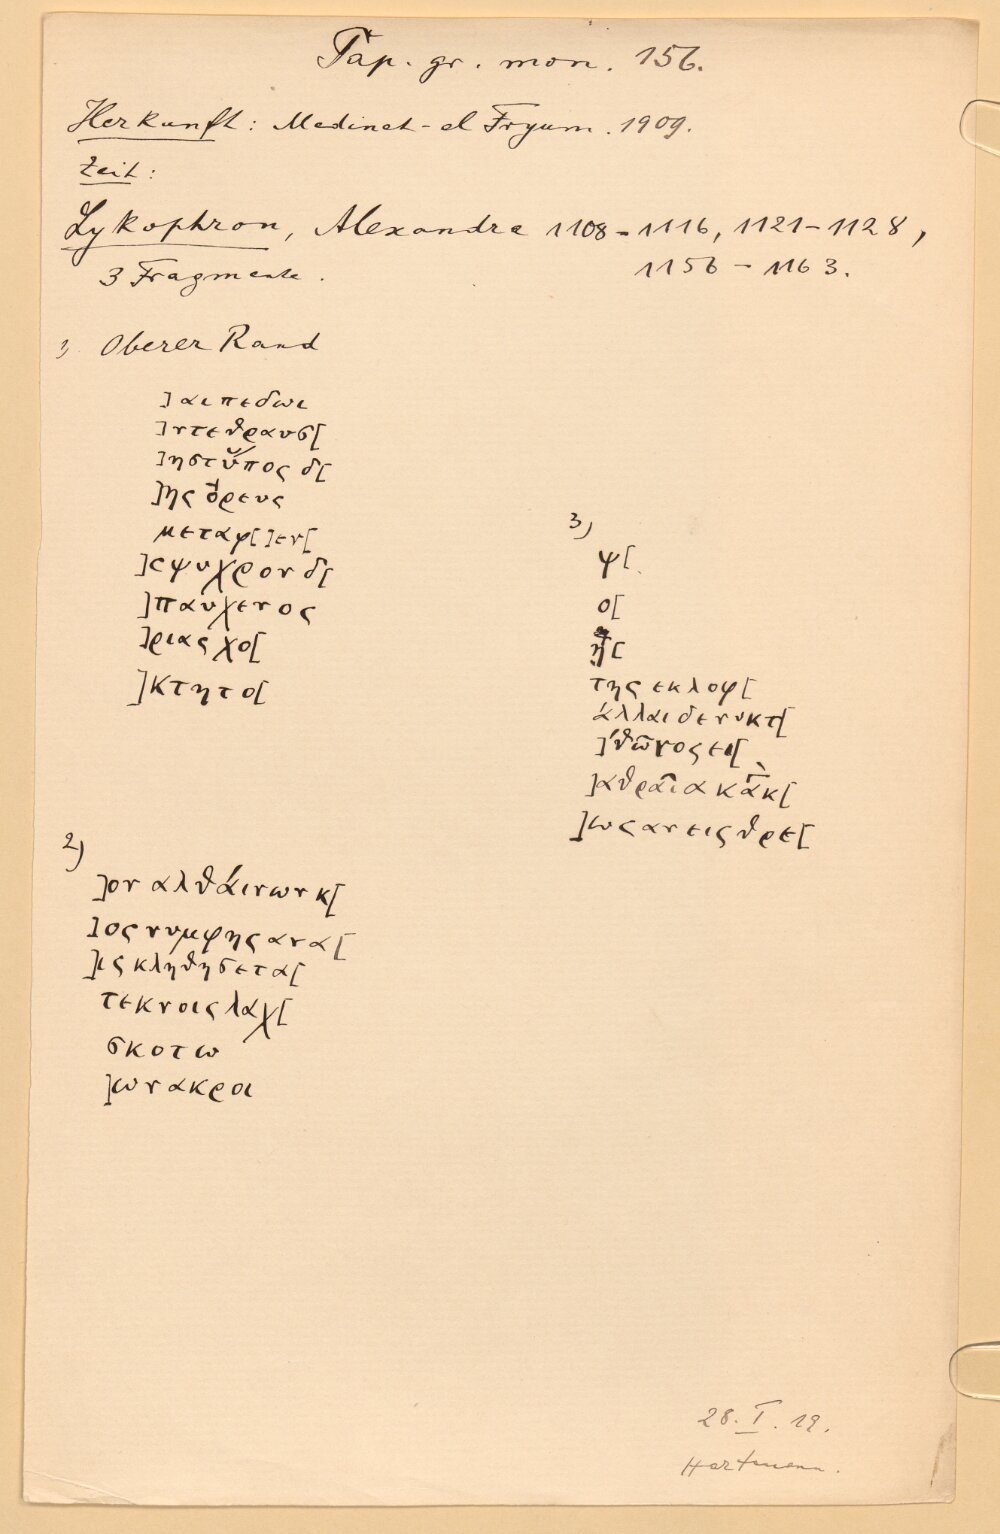 Pap. gr. mon. 156.
Herkunft: Medinet-el Fryum. 1909.
Zeit:
Lykophron, Alexandra 1108-1116, 1121-1128,
1156-1163.
3 Fragmente.
1) Oberer Rand
]αιπεδωι
]ντεθραυσ[
]ηστῠ́πος δ[
]ης ὄρευς
μεταφ[ ]εν[
]ςψυχρον δ[
]παυχενος
]ριας χο[
]κτητο[
2)
]ον αλθάινωνκ[
]ος νυμφης ανα[
]ις κληθησετα[
τεκνοις λαχ[
σκοτω
]ων ακροι
3)
ψ[
ο[
η[
της εκλοφ[
άλλαιδενυκτ[
]θῶνοςει[
]αθραῖα κἀκ[
]ως αν εις θρε[
28. I. 19.
Hartmann.